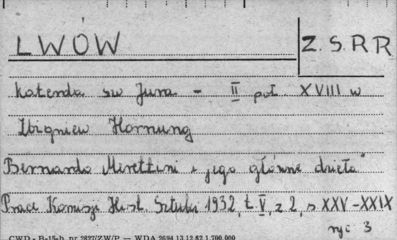 LWÓW
Z.S.R.R
Katedra św Jura - II poł. XVIII w
Zbigniew Hornung
Bernardo Merettini i jego główne dzieła"
Prace Komisji Hist. Sztuki 1932, t. V, z 2, s XXV-XXIX
ryc 3
CWD - Bełsh. nr 2827/ZW/P — WDA 26/94 13.12.52 1.700.000